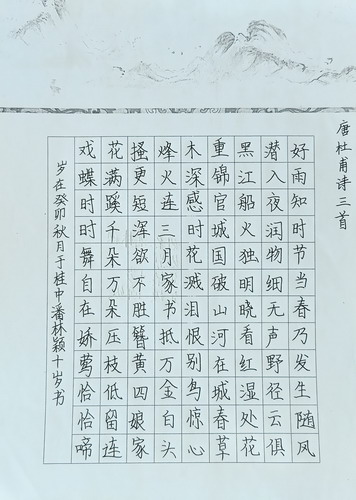 唐杜甫诗三首
好雨知时节当春乃发生随风
潜入夜润物细无声野径云俱
黑江船火独明晓看红湿处花
重锦官城国破山河在城春草
木深感时花溅泪恨别鸟惊心
烽火连三月家书抵万金白头
搔更短浑欲不胜簪黄四娘家
花满蹊千朵万朵压枝低留连
戏蝶时时舞自在娇莺恰恰啼
岁在癸卯秋月于桂中潘林颖十岁书